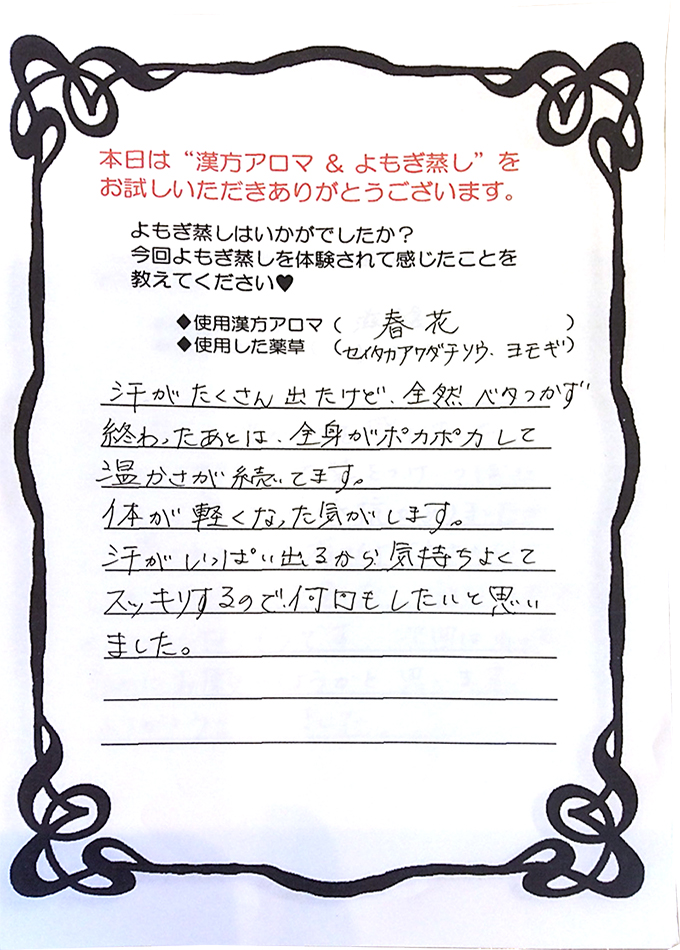 本日は“漢方アロマ & よもぎ蒸し”を
お試しいただきありがとうございます。
よもぎ蒸しはいかがでしたか？
今回よもぎ蒸しを体験されて感じたことを
教えてください♥
◆使用漢方アロマ（ 春花 ）
◆使用した薬草 （セイタカアワダチソウ、ヨモギ）
汗がたくさん出たけど、全然ベタつかず
終わったあとは、全身がポカポカして
温かさが続いてます。
体が軽くなった気がします。
汗がいっぱい出るから気持ちよくて
スッキリするので、何回もしたいと思い
ました。